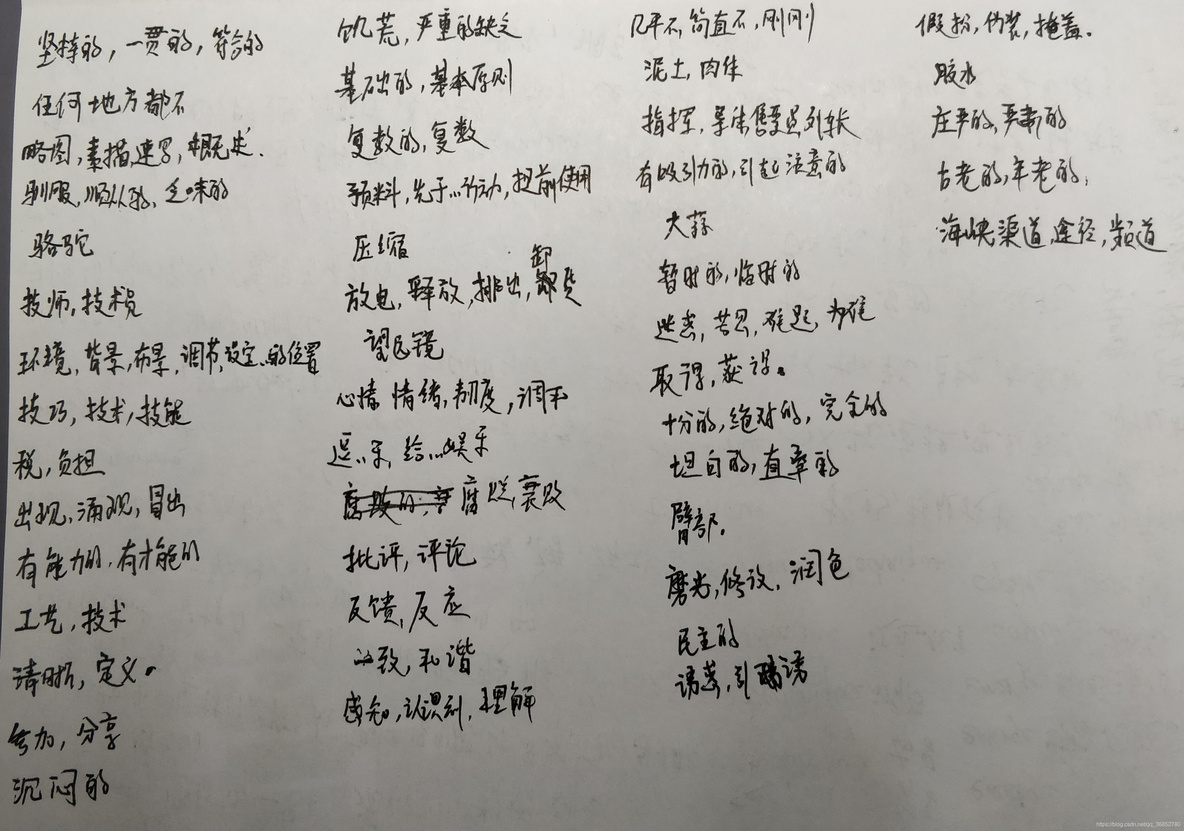 坚持的，一贯的，符合的
任何地方都不
略图，素描，速写，概述.
驯服，顺从的，乏味的
骆驼
技师，技术员
环境，背景，布景，调节，设定…的位置
技巧，技术，技能
税，负担
出现，涌现，冒出
有能力的，有才能的
工艺，技术
清晰，定义。
参加，分享
沉闷的
饥荒，严重的缺乏
基础的，基本原则
复数的，复数
预料，先于…行动，提前使用
压缩
卸
放电，释放，排出，卸货
望远镜
心情 情绪，韧度，调平
逗…乐，给…娱乐
腐烂，衰败
批评，评论
反馈，反应
一致，和谐
感知，认识到，理解
几乎不，简直不，刚刚
泥土，肉体
指挥，导体，列车长
有吸引力的，引起注意的
大蒜
暂时的，临时的
迷惑，苦恼，难题，为难
取得，获得。
十分的，绝对的，完全的
坦白的，直率的
臂部.
磨光，修改，润色
民主的
诱惑，引诱
假扮，伪装，掩盖.
胶水
庄严的，严肃的
古老的，年老的，
海峡，渠道，途径，频道
https://blog.csdn.net/qq_36852780